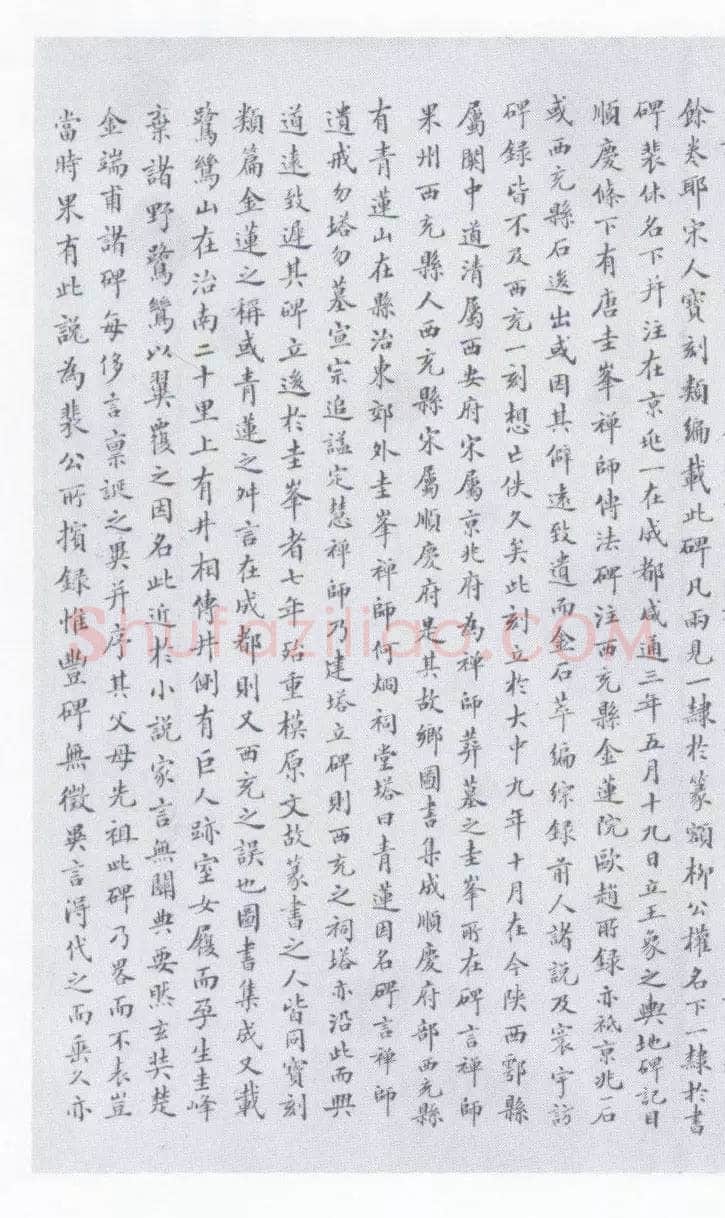 餘卷耶宋人寶刻類編載此碑凡兩見一隸於篆額柳公權名下一隸於書
碑裴休名下并注在京兆一在成都咸通三年五月十九日立王象之輿地碑記目
順慶條下有唐圭峯禪師傳法碑注西充縣金蓮院歐趙所錄亦祗京兆一石
或西充縣石後出或因其僻遠致遺而金石萃編綜錄前人諸說及寰宇訪
碑錄皆不及西充一刻想亡佚久矣此刻立於大中九年十月在今陝西鄠縣
屬關中道清屬西安府宋屬京兆府為禪師葬墓之圭峯所在碑言禪師
果州西充縣人西充縣宋屬順慶府是其故鄉圖書集成順慶府部西充縣
有青蓮山在縣治東郊外圭峯禪師何烱祠堂塔曰青蓮因名碑言禪師
遺戒勿塔勿墓宣宗追謚定慧禪師乃建塔立碑則西充之祠塔亦沿此而興
道遠致遲其碑立後於圭峯者七年殆重模原文故篆書之人皆同寶刻
類篇金蓮之稱或青蓮之舛言在成都則又西充之誤也圖書集成又載
鸑鷟山在治南二十里上有井相傳井側有巨人跡室女履而孕生圭峰
棄諸野鸑鷟以翼覆之因名此近於小說家言無關典要然玄奘楚
金端甫諸碑每侈言稟誕之異并序其父母先祖此碑乃畧而不表豈
當時果有此說為裴公所擯錄惟豐碑無徵異言得代之而垂久亦
Shufaziliao.COM